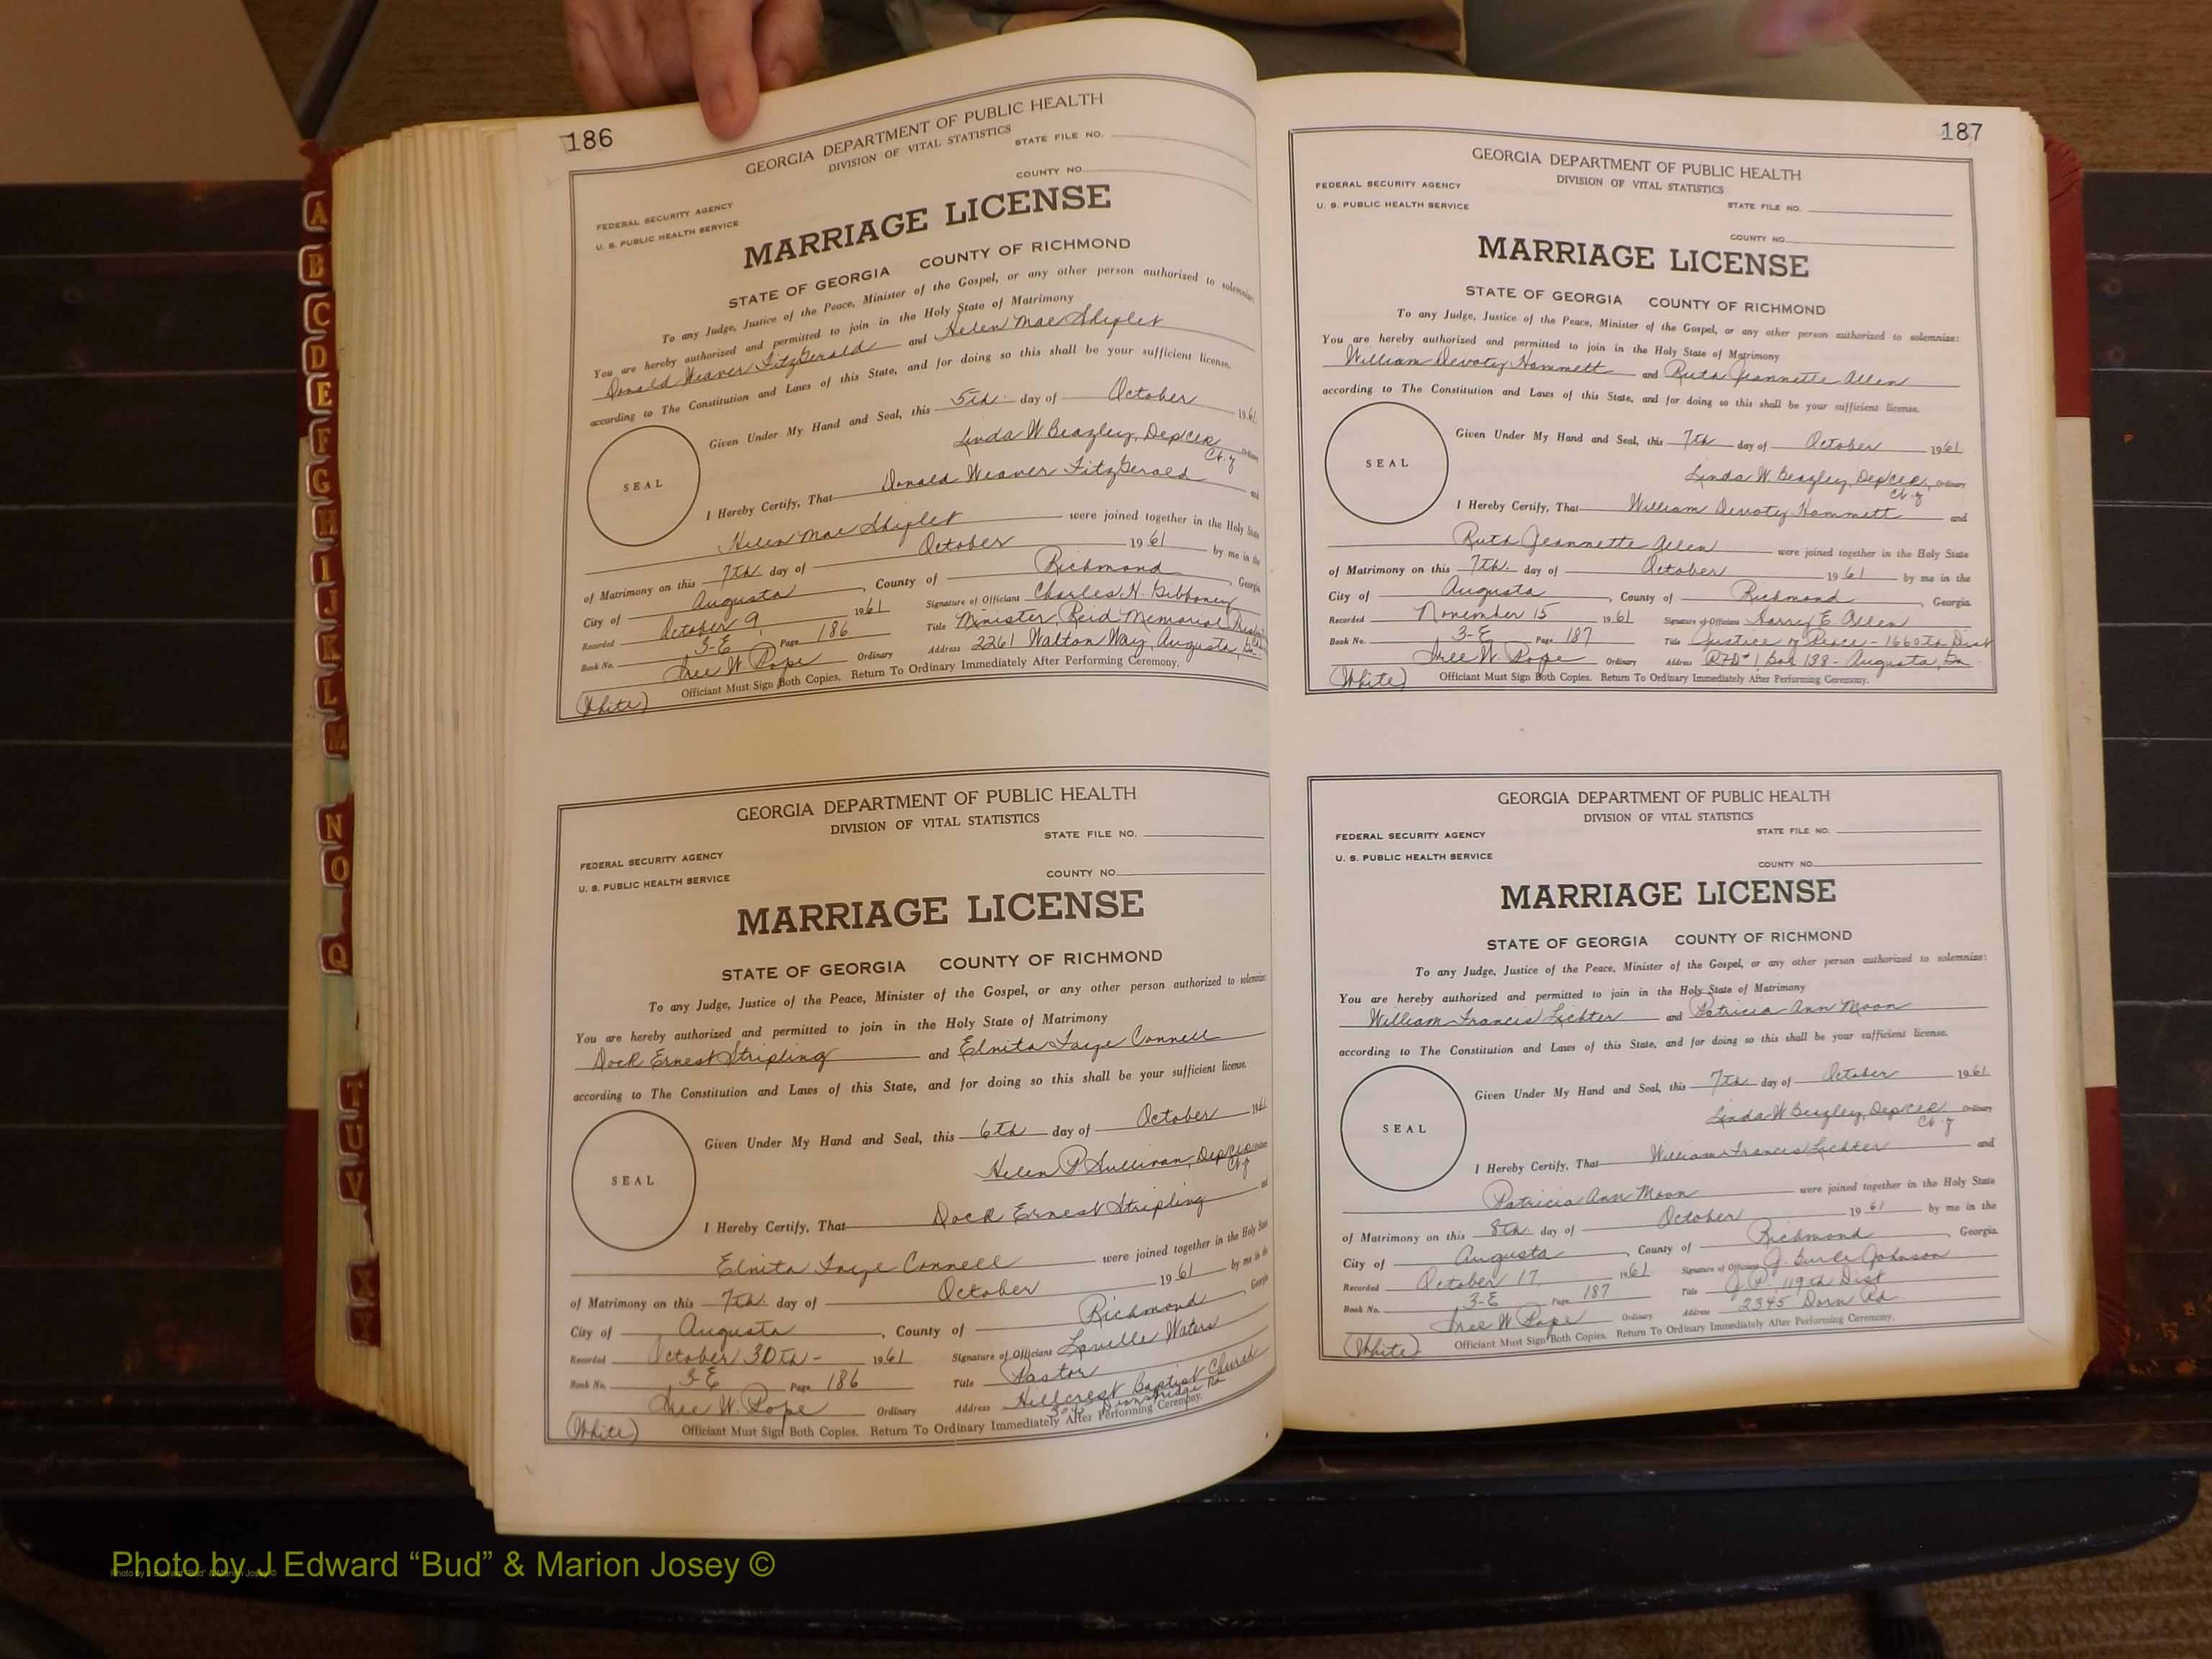 186
GEORGIA DEPARTMENT OF PUBLIC HEALTH
DIVISION OF VITAL STATISTICS
STATE FILE NO.
COUNTY NO.
FEDERAL SECURITY AGENCY
U. S. PUBLIC HEALTH SERVICE
MARRIAGE LICENSE
STATE OF GEORGIA COUNTY OF RICHMOND
To any Judge, Justice of the Peace, Minister of the Gospel, or any other person authorized to solemnize
You are hereby authorized and permitted to join in the Holy State of Matrimony
Donald Weaver FitzGerald and Helen Mae Shiplet
according to The Constitution and Laws of this State, and for doing so this shall be your sufficient license.
Given Under My Hand and Seal, this 5th day of October 1961
Linda W Beazley, Dep Clk Ordinary
Ct. of
SEAL
I Hereby Certify, That Donald Weaver FitzGerald and
Helen Mae Shiplet were joined together in the Holy State
of Matrimony on this 7th day of October 1961 by me in the
City of Augusta, County of Richmond, Georgia
Recorded October 9, 1961 Signature of Officiant Charles N. Gibboney
Book No. 3-E Page 186 Title Minister, Reid Memorial
Tree W. Pope Ordinary Address 2261 Walton Way, Augusta, Ga
(White) Officiant Must Sign Both Copies. Return To Ordinary Immediately After Performing Ceremony.
GEORGIA DEPARTMENT OF PUBLIC HEALTH
DIVISION OF VITAL STATISTICS
STATE FILE NO.
FEDERAL SECURITY AGENCY
U. S. PUBLIC HEALTH SERVICE
COUNTY NO.
MARRIAGE LICENSE
STATE OF GEORGIA COUNTY OF RICHMOND
To any Judge, Justice of the Peace, Minister of the Gospel, or any other person authorized to solemnize
You are hereby authorized and permitted to join in the Holy State of Matrimony
Dock Ernest Stripling and Elnita Faye Connell
according to The Constitution and Laws of this State, and for doing so this shall be your sufficient license.
Given Under My Hand and Seal, this 6th day of October 1961
Helen P. Sullivan, Dep Clk Ordinary
Ct. of
SEAL
I Hereby Certify, That Dock Ernest Stripling and
Elnita Faye Connell were joined together in the Holy State
of Matrimony on this 7th day of October 1961 by me in the
City of Augusta, County of Richmond Georgia
Recorded October 30th - 1961 Signature of Officiant Laville Waters
Book No. 3-E Page 186 Title Pastor
Tree W. Pope Ordinary Address Hillcrest Baptist Church
Rd
(White) Officiant Must Sign Both Copies. Return To Ordinary Immediately After Performing Ceremony.
187
GEORGIA DEPARTMENT OF PUBLIC HEALTH
DIVISION OF VITAL STATISTICS
FEDERAL SECURITY AGENCY
U. S. PUBLIC HEALTH SERVICE
STATE FILE NO.
COUNTY NO.
MARRIAGE LICENSE
STATE OF GEORGIA COUNTY OF RICHMOND
To any Judge, Justice of the Peace, Minister of the Gospel, or any other person authorized to solemnize:
You are hereby authorized and permitted to join in the Holy State of Matrimony
William Devoty Hammett and Ruth Jeannette Allen
according to The Constitution and Laws of this State, and for doing so this shall be your sufficient license.
Given Under My Hand and Seal, this 7th day of October 1961
Linda W. Beazley, Dep Clk, Ordinary
Ct. of
SEAL
I Hereby Certify, That William Devoty Hammett and
Ruth Jeannette Allen were joined together in the Holy State
of Matrimony on this 7th day of October 1961 by me in the
City of Augusta, County of Richmond, Georgia
Recorded November 15 1961 Signature of Officiant Harry E. Allen
Book No. 3-E Page 187 Title Justice of Peace - 1660th Dist
Tree W. Pope Ordinary Address RFD #1 Box 138 - Augusta, Ga
(White) Officiant Must Sign Both Copies. Return To Ordinary Immediately After Performing Ceremony.
GEORGIA DEPARTMENT OF PUBLIC HEALTH
DIVISION OF VITAL STATISTICS
FEDERAL SECURITY AGENCY
STATE FILE NO.
U. S. PUBLIC HEALTH SERVICE
COUNTY NO.
MARRIAGE LICENSE
STATE OF GEORGIA COUNTY OF RICHMOND
To any Judge, Justice of the Peace, Minister of the Gospel, or any other person authorized to solemnize:
You are hereby authorized and permitted to join in the Holy State of Matrimony
William Francis Lichter and Patricia Ann Moon
according to The Constitution and Laws of this State, and for doing so this shall be your sufficient license.
Given Under My Hand and Seal, this 7th day of October 1961
Linda W Beazley, Dep Clk Ordinary
Ct. of
SEAL
I Hereby Certify, That William Francis Lichter and
Patricia Ann Moon were joined together in the Holy State
of Matrimony on this 8th day of October 1961 by me in the
City of Augusta, County of Richmond, Georgia
Recorded October 17, 1961 Signature of Officiant J. Johnson
Book No. 3-E Page 187 Title J.P. 119th Dist
Tree W Pope Ordinary Address 2345 Dorn Rd
(White) Officiant Must Sign Both Copies. Return To Ordinary Immediately After Performing Ceremony.
A
B
C
D
E
F
G
H
I
J
K
L
M
N
O
Q
T
U
V
X
Y
Photo by J Edward “Bud” & Marion Josey ©
Photo by J Edward “Bud” & Marion Josey ©